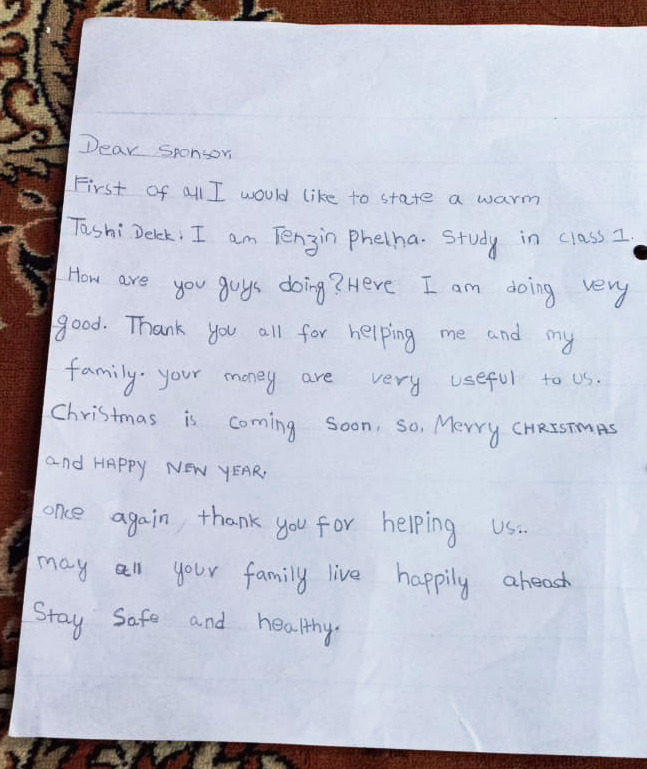 Dear Sponsor,
First of all I would like to state a warm
Tashi Delek. I am Tenzin Phelha. Study in class 1.
How are you guys doing? Here I am doing very
good. Thank you all for helping me and my
family. your money are very useful to us.
Christmas is coming soon, so, Merry CHRISTMAS
and HAPPY NEW YEAR.
once again, thank you for helping us..
may all your family live happily ahead
Stay Safe and healthy.